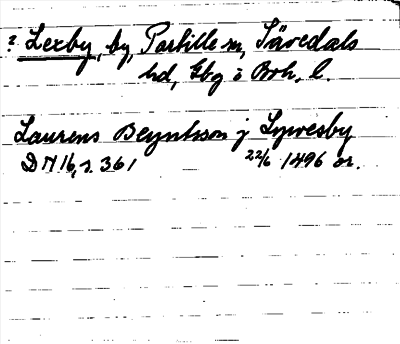 ? Lexby, by, Partille sn, Sävedals
hd, Gbg o Boh. l.
Laurens Beyntsson j Lyresby
DN 16, s. 361 22/6 1496 or.